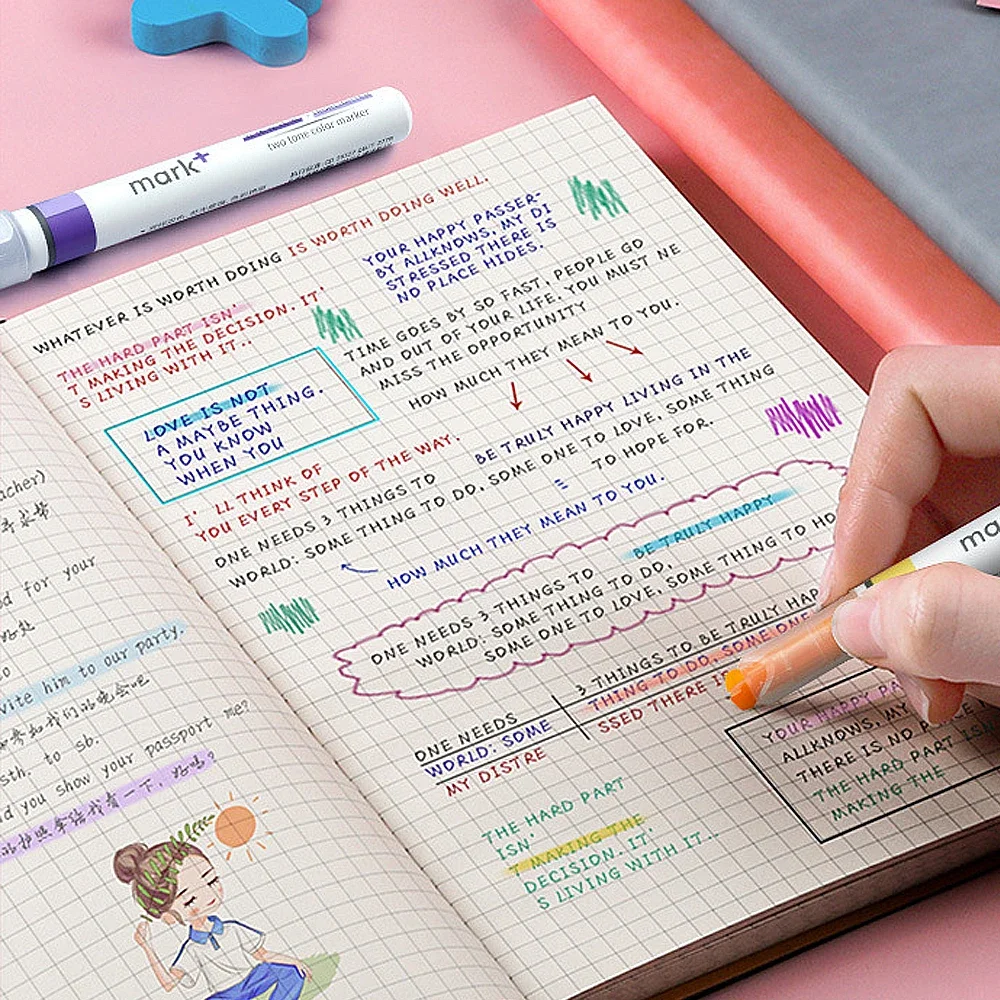 mark+
two tone color marker
WHATEVER IS WORTH DOING IS WORTH DOING WELL.
THE HARD PART ISN'
T MAKING THE DECISION. IT'
S LIVING WITH IT..
YOUR HAPPY PASSER-
BY ALLKNOWS, MY DI
STRESSED THERE IS
NO PLACE HIDES.
TIME GOES BY SO FAST, PEOPLE GO
AND OUT OF YOUR LIFE. YOU MUST NE
MISS THE OPPORTUNITY
HOW MUCH THEY MEAN TO YOU.
LOVE IS NOT
A MAYBE THING.
YOU KNOW
WHEN YOU
I' LL THINK OF
YOU EVERY STEP OF THE WAY.
BE TRULY HAPPY LIVING IN THE
ONE NEEDS 3 THINGS TO
WORLD: SOME THING TO DO, SOME ONE TO LOVE, SOME THING
TO HOPE FOR.
HOW MUCH THEY MEAN TO YOU.
BE TRULY HAPPY
ONE NEEDS 3 THINGS TO
WORLD: SOME THING TO DO,
SOME ONE TO LOVE, SOME THING TO HO
3 THINGS TO BE TRULY HAP
ONE NEEDS
THING TO DO, SOME ONE
WORLD: SOME
SSED THERE I
MY DISTRE
YOUR HAPPY PA
ALLKNOWS, MY
THERE IS NO PLACE
THE HARD PART ISN
MAKING THE
THE HARD PART
ISN'
T MAKING THE
DECISION. IT'
S LIVING WITH IT..
acher)
d for your
vite him to our party.
sth. to sb.
d you show your passport me?
ma